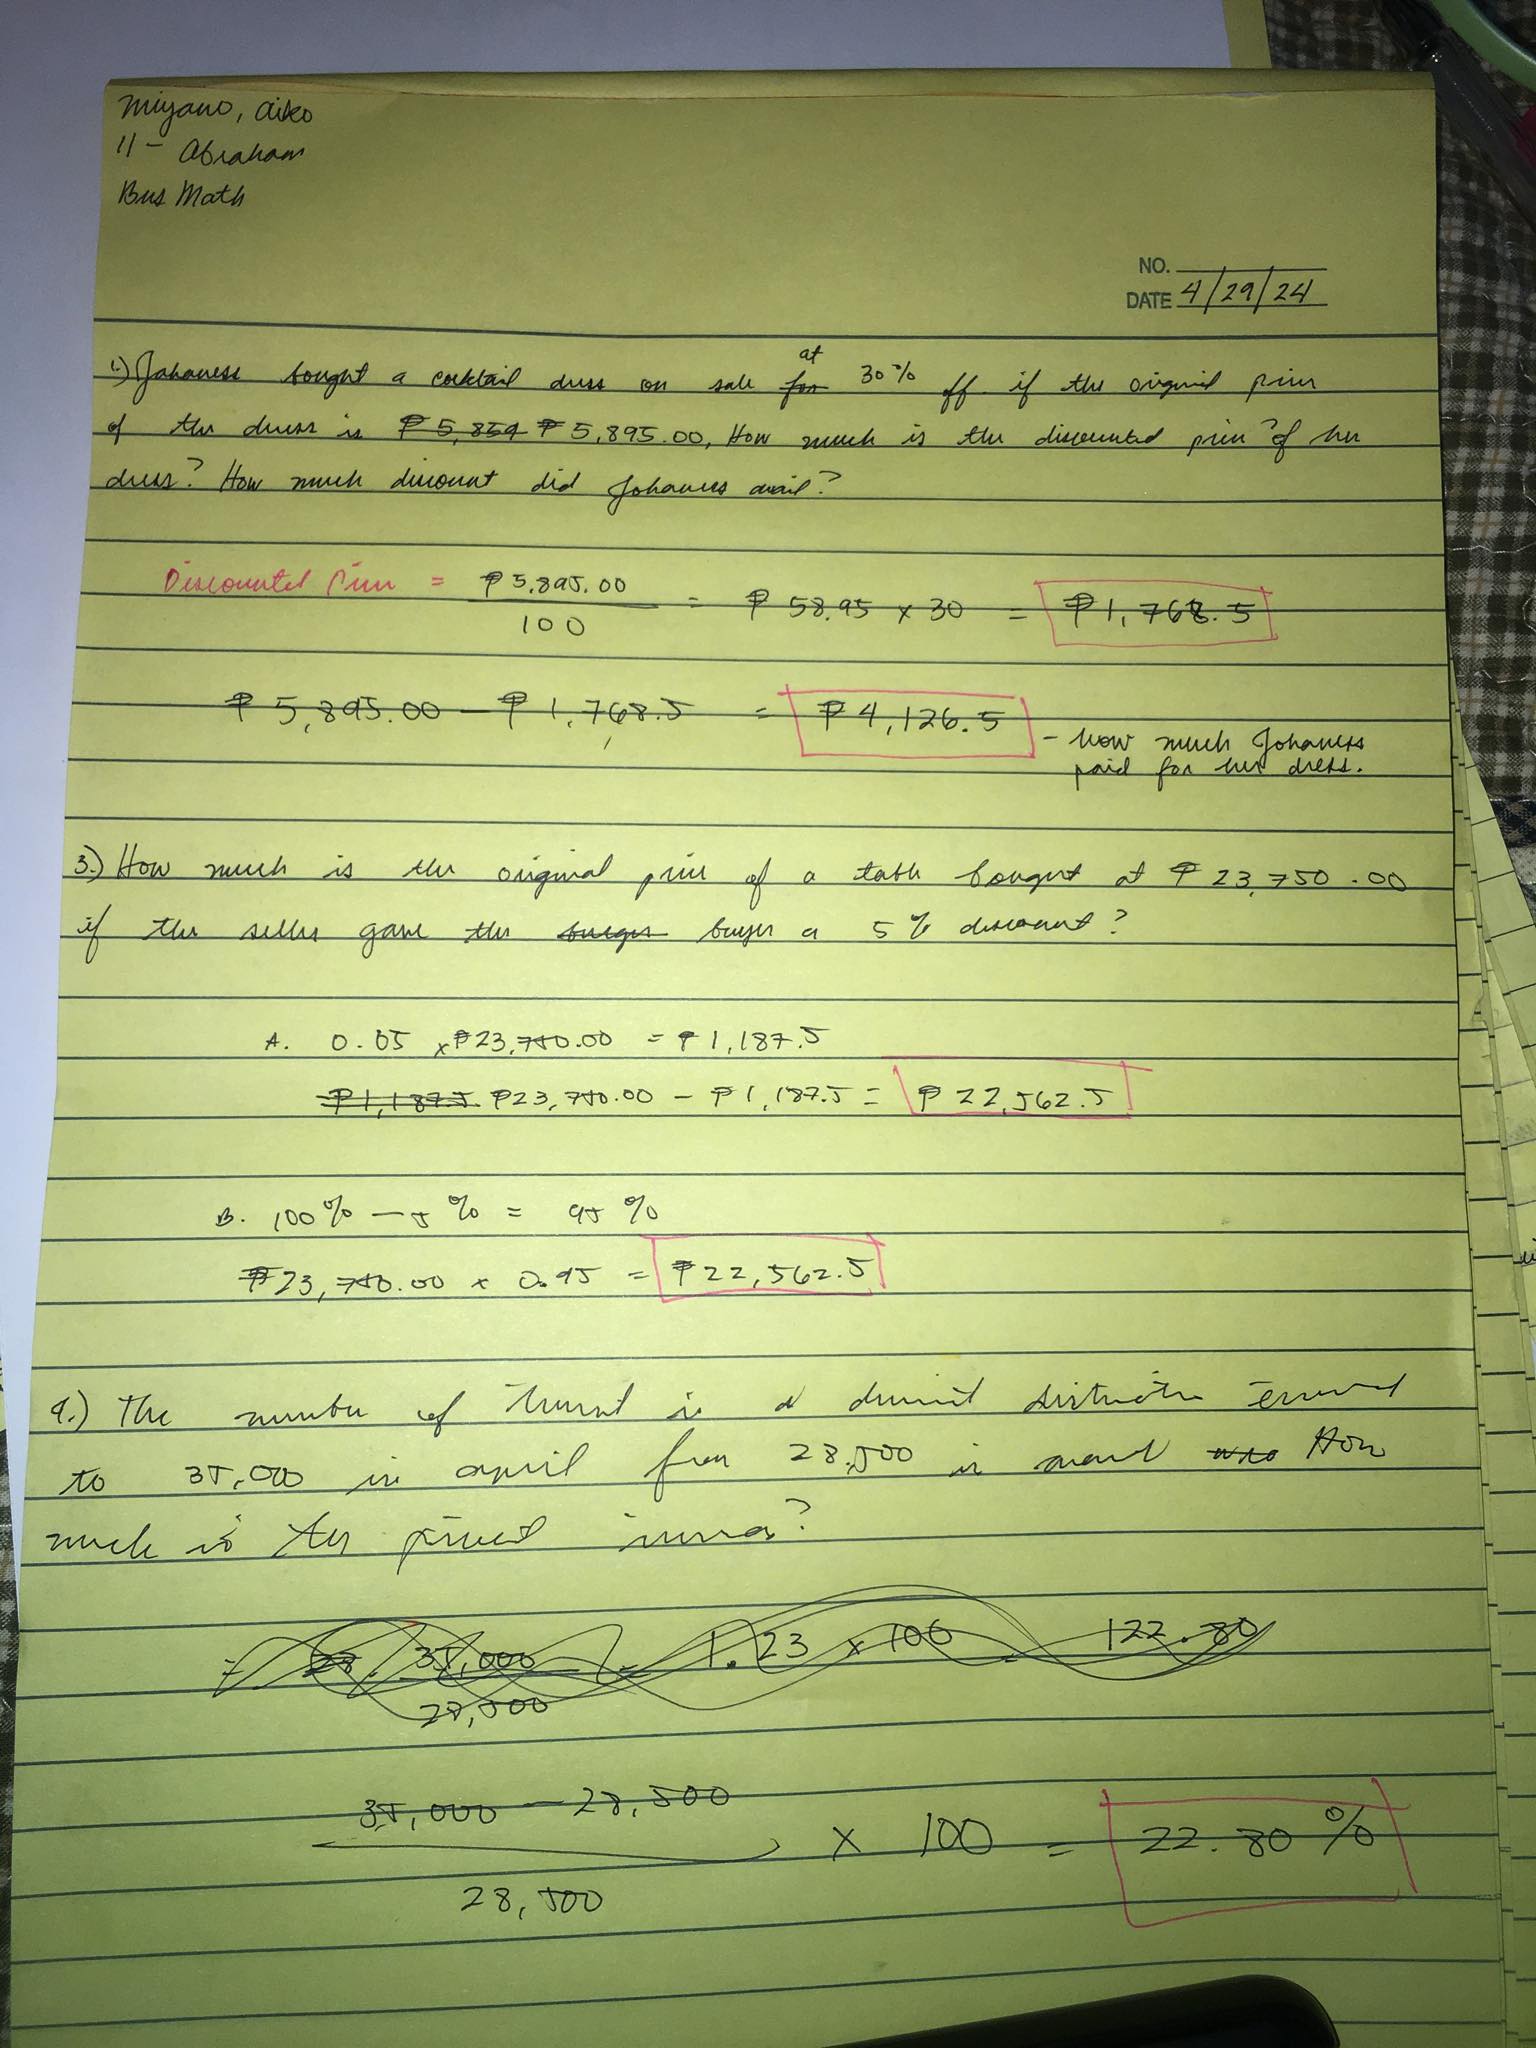 Miyano, Aiko
11 - Abraham
Bus Math
NO.
DATE 4/29/24
1.) Johaness bought a cocktail dress on sale for at 30% off. if the original price
of the dress is ₱5,859 ₱5,895.00, How much is the discounted price of her
dress? How much discount did Johaness avail?
Discounted Price = ₱5,895.00 / 100 = ₱58.95 x 30 = ₱1,768.5
₱5,895.00 - ₱1,768.5 = ₱4,126.5
- how much Johaness
paid for her dress.
3.) How much is the original price of a table bought at ₱23,750.00
if the seller gave the buyer a 5% discount?
A. 0.05 x ₱23,750.00 = ₱1,187.5
₱1,187.5 ₱23,750.00 - ₱1,187.5 = ₱22,562.5
B. 100% - 5% = 95%
₱23,750.00 x 0.95 = ₱22,562.5
4.) The number of in a
to 35,000 in april from 28,500 in How
much is the
= 28. 35,000 / 28,500 = 1.23 x 100 = 122.80
35,000 - 28,500 / 28,500 x 100 = 22.80%